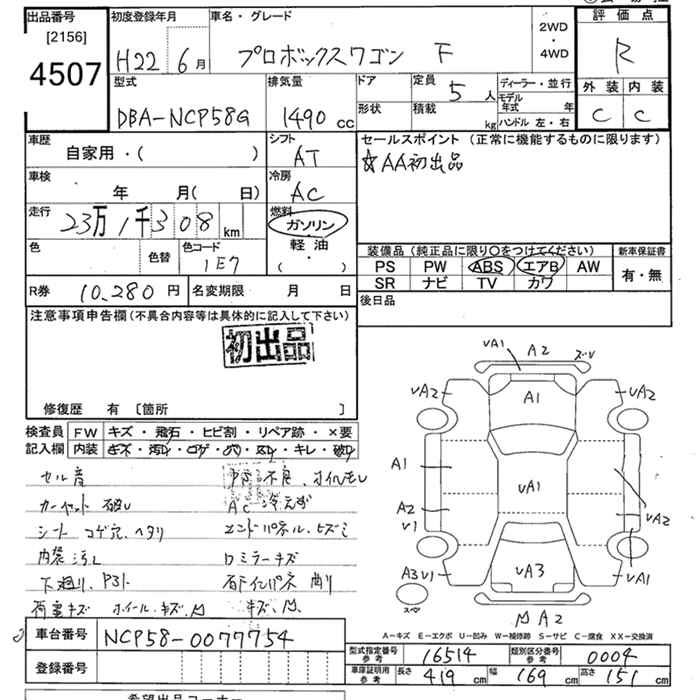 出品番号 [2156] 4507
初度登録年月 H22 6月
車名・グレード プロボックスワゴン F
2WD・4WD
評価点 R
外装 C 内装 C
型式 DBA-NCP58G
排気量 1490 cc
ドア 形状
定員 5人 積載 kg
ディーラー・並行
モデル年式 年
ハンドル 左・右
車歴 自家用・( )
シフト AT
セールスポイント (正常に機能するものに限ります)
☆AA初出品
車検 年 月( 日)
冷房 AC
走行 23万1千308 km
燃料 ガソリン・軽油 ( ・ )
色 色替 色コード 1E7
装備品 (純正品に限り○をつけてください) 新車保証書
PS PW ABS エアB AW 有・無
SR ナビ TV カワ
R券 10,280 円 名変期限 月 日
後日品
注意事項申告欄 (不具合内容等は具体的に記入して下さい)
初出品
修復歴 有 〔箇所 〕
検査員記入欄 FW キズ・飛石・ヒビ割・リペア跡・×要
内装 キズ・汚レ・コゲ・穴・スレ・キレ・破レ
セル音 不良、オイルモレ
カーゼット 破レ AC冷えず
シート コゲ穴、ヘタリ エンドパネル、ヒズミ
内装汚レ ロミラーキズ
下廻り、アスト 右Fインパネ 曲り
荷室キズ ホイール、キズ、凹 キズ、凹
vA1 A2 ズレ
vA2 A1 vA2
A1 vA1
A2 v1 vA2
A3v1 vA3 vA1
凹A2
スペ
A-キズ E-エクボ U-凹み W-補修跡 S-サビ C-腐食 XX-交換済
車台番号 NCP58-0077754
登録番号
型式指定番号 参考 16514 類別区分番号 参考 0004
車庫証明用 参考 長さ 419 cm 幅 169 cm 高さ 151 cm
希望出品コーナー